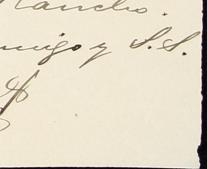 Rancho.
amigo y S. S.